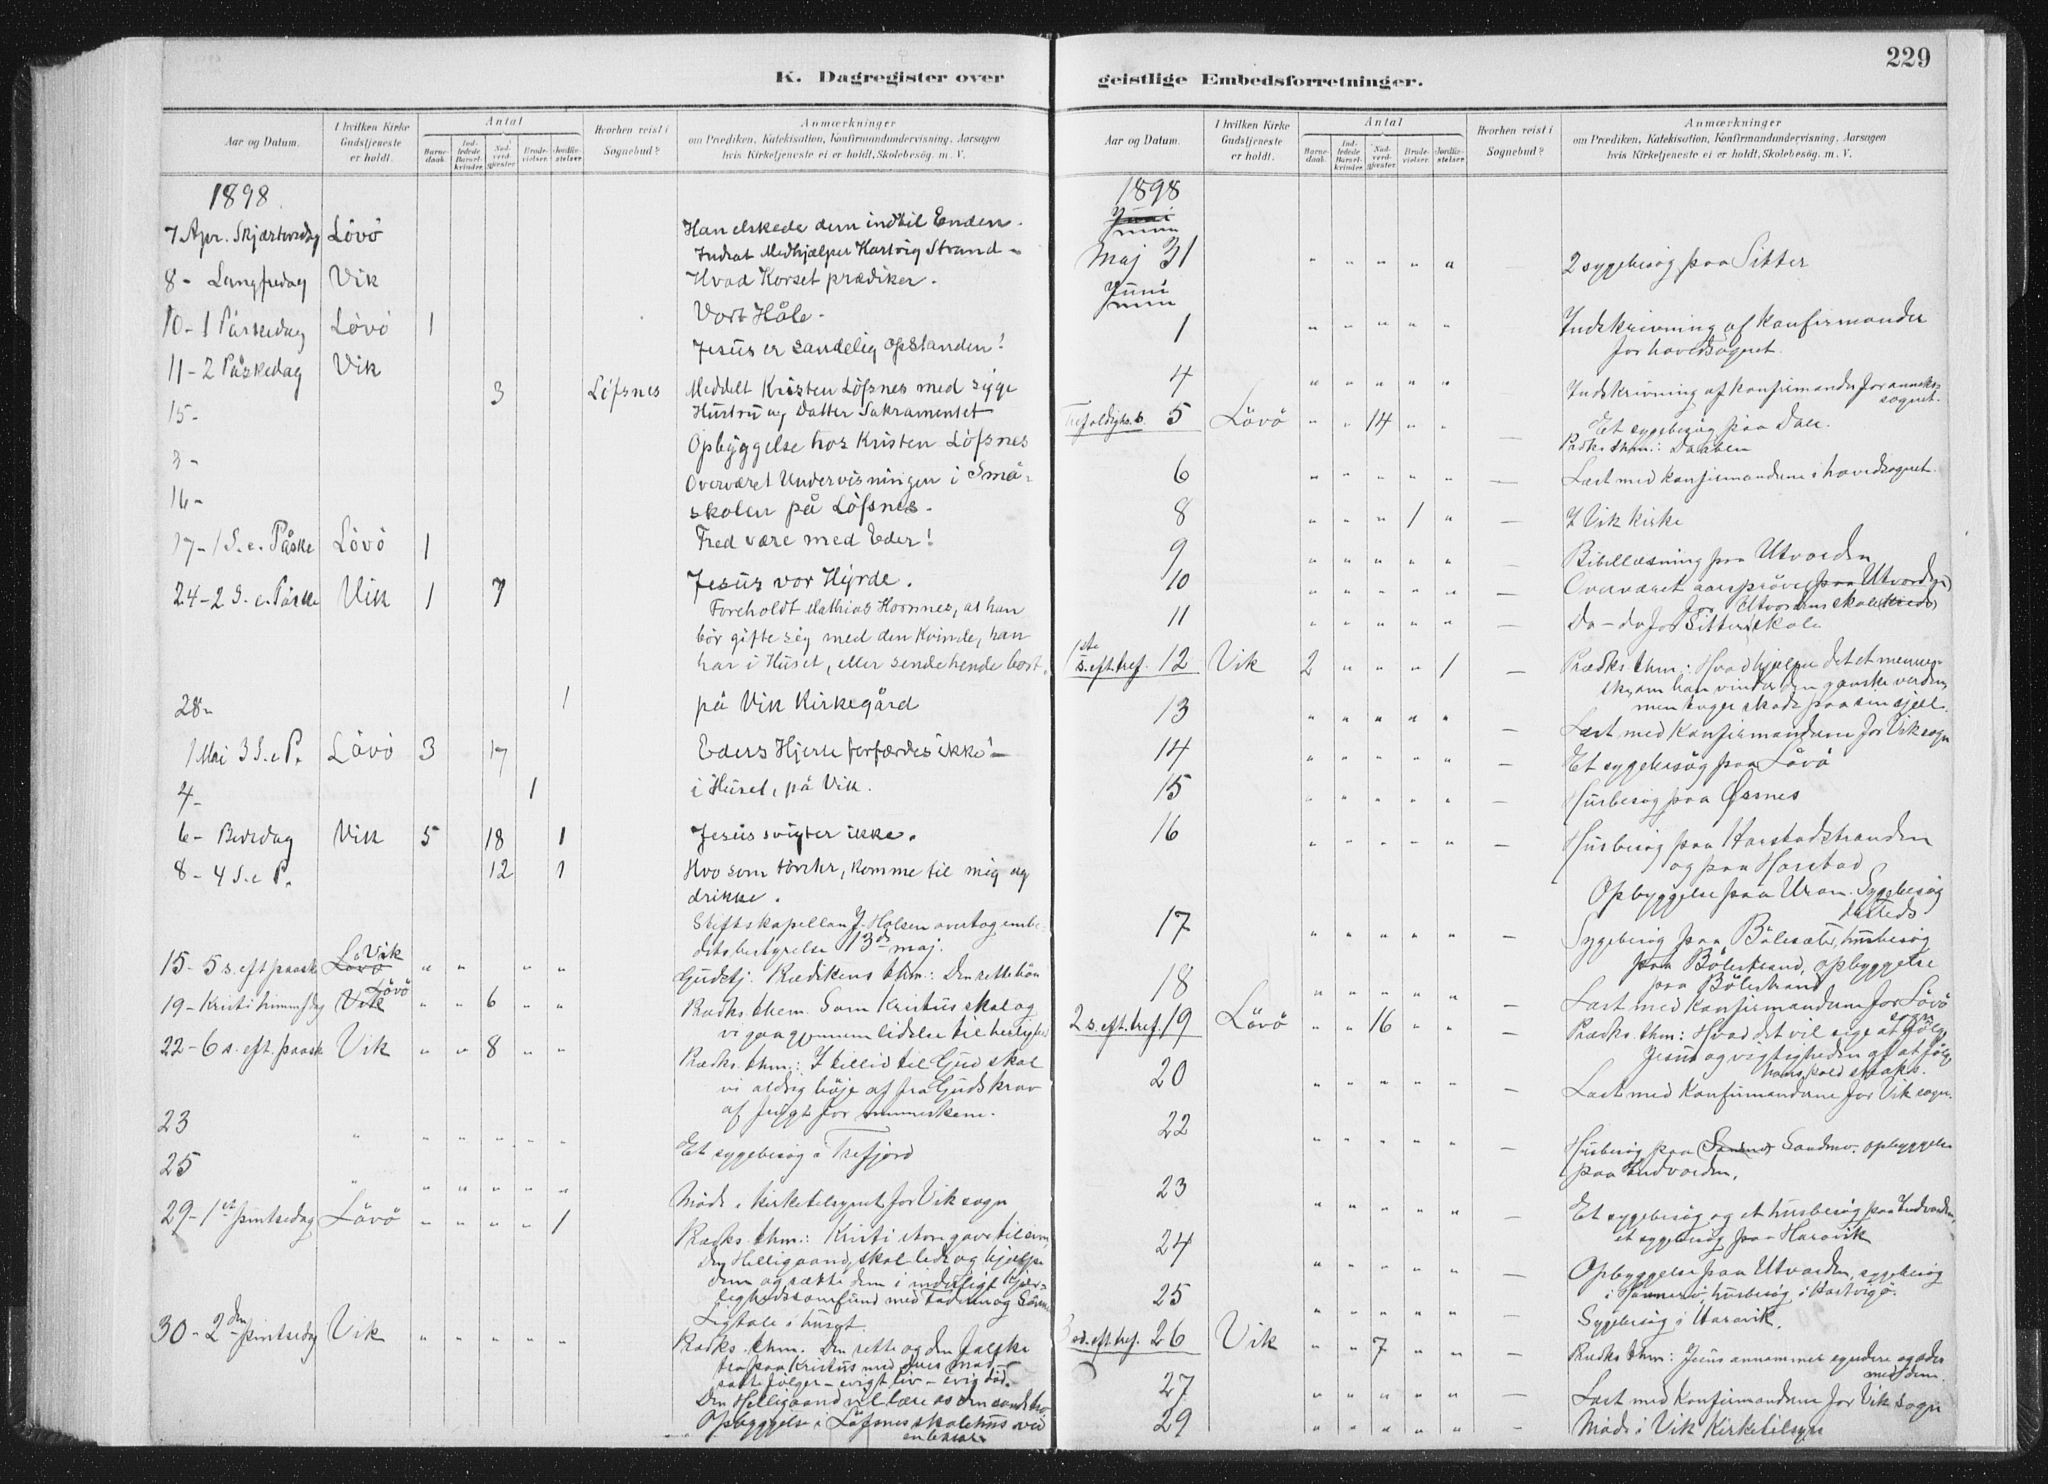 K. Dagregister over
Aar og Datum. I hvilken Kirke Gudstjeneste er holdt. Antal Barnedaab. Indledede Barselkvinder. Nadverdgjester. Brudevielser. Jordfæstelser. Hvorhen reist i Sognebud? Anmærkninger om Prædiken, Katekisation, Konfirmandundervisning, Aarsagen hvis Kirketjeneste ei er holdt, Skolebesøg. m. V.
1898.
7 Apr. Skjærtorsdag Lövö Han elskede dem indtil Enden.
Indsat Medhjælper Hartvig Strand -
8 - Langfredag Vik Hvad Korset prædiker.
10 - 1 Påskedag Lövö 1 Vort Håb.
11 - 2 Påskedag Vik Jesus er sandelig opstanden!
15 - 3 Löfsnes Meddelt Kristen Löfsnes med syge
Hustru og Datter Sakramentet
Opbyggelse hos Kristen Löfsnes
16 - Overværet Undervisningen i Små-
skolen på Löfsnes.
17 - 1 S. e. Påske Lövö 1 Fred være med Eder!
24 - 2 S. e. Påske Vik 1 7 Jesus vor Hyrde.
Foreholdt Mathias Hornnes, at han
bör gifte sig med den Kvinde, han
har i Huset, eller sende hende bort.
28 - 1 på Vik Kirkegård
1 Mai 3 S. e P. Lövö 3 17 Eders Hjerte forfærdes ikke! -
4 - 1 i Huset, på Vik.
6 - Bededag Vik 5 18 1 Jesus svigter ikke.
8 - 4 S. e P. 12 1 Hvo som törster, komme til mig og
drikke.
Stiftskapellan J. Holsen overtog embe-
detsbestyrelse 13de maj.
15 - 5 s. eft paask Lövö Vik " " " " Gudstj. Prædikens thm: Den rette bön
19 - Kristi himmfdag Vik Lövö " " 6 " " Prædks them. Som Kristus skal og
vi gaa gjennem lidelse til herlighed
22 - 6 s. eft. paask Vik " " 8 " " Prædks. thm.: I tillid til Gud skal
vi aldrig böje af fra Guds krav
af frygt for menneskene.
23 " " " " " " Et sygebesög i Trefjord
25 " " " " " " Möde i kirketilsynet for Vik sogn
29 - 1ste pintsedag Lövö " " " " 1 Prædks. thm.: Kristi
Den Helligaand, skal lede og hjælpe
dem og sætte dem i inderligt kjær-
lighedssamfund med Faderen og Sönnen
Ligtale i huset.
30 - 2den pintsedag Vik " " " " " Prædks. thm. Den rette og den falske
tro paa Kristus med deres mod-
satte fölger - evigt liv - evig död.
Den Helligaand vil lære os den sande tro
Opbyggelse i Löfsnes skolehus ved

geistlige Embedsforretninger.
229
Aar og Datum. I hvilken Kirke Gudstjeneste er holdt. Antal Barnedaab. Indledede Barselkvinder. Nadverdgjester. Brudevielser. Jordfæstelser. Hvorhen reist i Sognebud? Anmærkninger om Prædiken, Katekisation, Konfirmandundervisning, Aarsagen hvis Kirketjeneste ei er holdt, Skolebesøg. m. V.
1898
Juni
Maj 31 " " " " " — 2 sygebesög paa Sitter
Juni
1 " " " " " Indskrivning af konfirmander
for hovedsognet.
4 " " " " " Indskrivning af konfirmander for anneks-
sognet.
Trefoldighs. s. 5 Lövö " " 14 " " — Et sygebesög paa Dale.
Prædks thm: Daaben
6 " " " " " — Læst med konfirmanderne i hovedsognet.
8 " " " 1 " — I Vik kirke
9 " " " " " — Bibellæsning paa Utvorden
10 " " " " " — Overværet aarspröve paa Utvorden
for Utvordens skolekreds
11 " " " " " — Do - do for Sitter skole
1ste s. eft. tref. 12 Vik 2 " " " 1 — Prædks. thm: Hvad hjælper det et menne-
ske, om han vinder den ganske verden,
men tager skade paa sin sjæl.
13 " " " " " — Læst med konfirmanderne for Vik sogn
14 " " " " " — Et sygebesög paa Lövö
15 " " " " " — Husbesög paa Osnes
16 " " " " " — Husbesög paa Harstadstranden
og paa Harstad
Opbyggelse paa Uran. Sygebesög
dersteds
17 " " " " " — Sygebesög paa Bölesæter, husbesög
paa Bölestrand, opbyggelse
paa Bölestrand
18 " " " " " — Læst med konfirmanderne for Lövö
sogn
2 s. eft. tref. 19 Lövö " " 16 " " — Prædks. thm: Hvad det vil sige at fölge
Jesus og vigtigheden af at fölge
hans kald straks.
20 " " " " " — Læst med konfirmanderne for Vik sogn.
22 " " " " " — Husbesög paa Sandmo, opbyggelse
paa Indvorden.
23 " " " " " — Et sygebesög og et husbesög paa Indvorden,
et sygebesög paa Haravik
24 " " " " " — Opbyggelse paa Utvorden, sygebesög
i husbesög i Hartvigö.
25 " " " " " — Sygebesög i Haravik.
3 s. eft. tref. 26 Vik " " 7 " " — Prædks thm: Jesus annammer syndere og æder
med dem.
27 " " " " " — Læst med konfirmanderne for Vik sogn
29 " " " " " — Möde i Vik Kirketilsyn